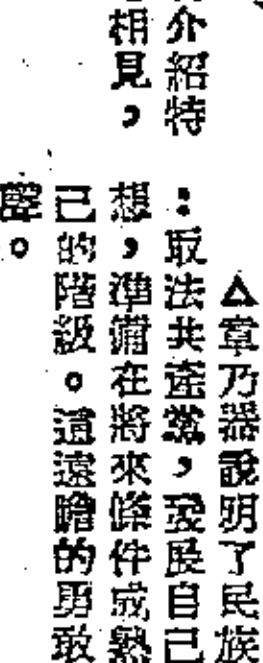 介紹特
相見，
▲章乃器說明了民族
：取法共產黨，發展自己
想，準備在將來條件成熟
己的階級。這遠瞻的勇敢
聲。